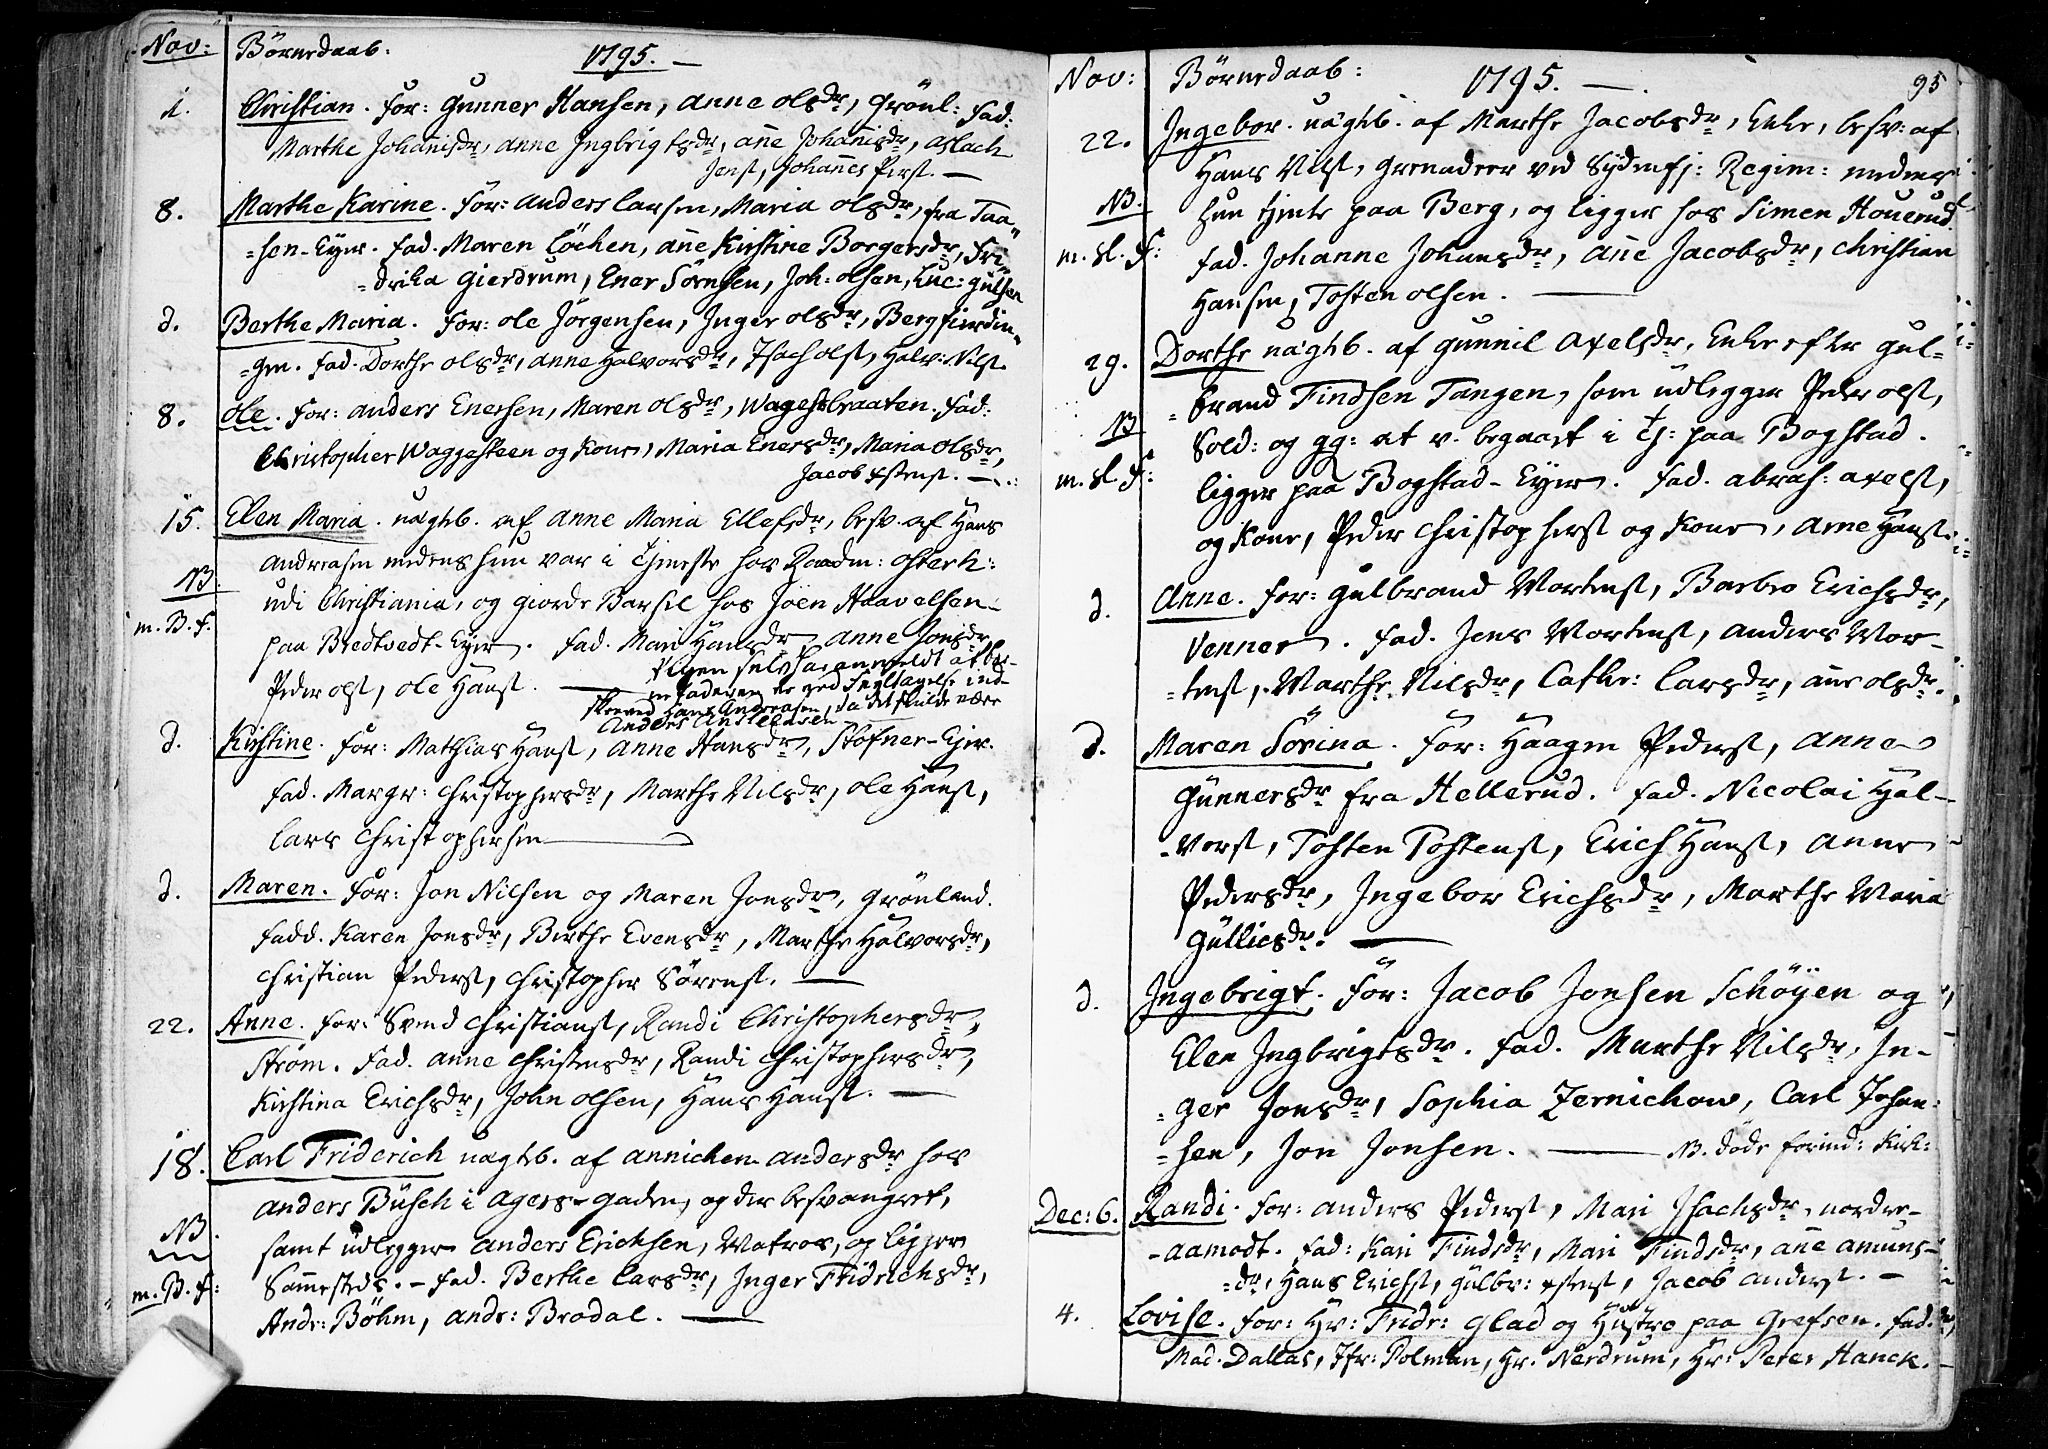 Nov: Börnedaab: 1795. —
1. Christian. For: Gunner Hansen, Anne Olsdr, Grönl: Fad:
Marthe Johanisdr, Anne Ingbrigtsdr, Anne Johanisdr, Aslach
Jenss, Johannes Perss. —
8. Marthe Karine. For: Anders Larsen, Maria Olsdr, fra Taa„
=sen-Eyer. Fad. Maren Löchen, Anne Kirstine Borgersdr, Fri„
=drika Gierdrum, Ener Sörnsen, Joh: Olsen, Luc: Gulsen
d. Berthe Maria. For: Ole Jörgensen, Inger Olsdr, Bergfierdin„
=gen. Fad. Dorthe Olsdr, Anne Halvorsdr, Isach Olss, Halv: Nilss.
8. Ole. For: Anders Enersen, Maren Olsdr, Wagestbraaten. Fad:
Christopher Waggesteen og Kone, Maria Enersdr, Maria Olsdr,
Jacob Estenss. —
15. Elen Maria. uægtb. af Anne Maria Ellefsdr, besv. af Hans
Andreasen medens hun var i Tjeneste hos Raadm: Osterh:
NB. udi Christiania, og giorde Barsel hos Joen Haavelsen
m. B. f. paa Bredtvedt-Eyer. Fad. Mari Hansdr, Anne Jonsdr,
Peder Olss, Ole Hanss. —
Pigen selv har anmeldt at bar-
nefaderen er ved Feiltagelse ind-
skreved Hans Andreasen, da det skulde være
Anders Anstensen
d. Kirstine. For: Mathias Hanss, Anne Hansdr, Stofner-Ejer.
Fad. Margr: Christophersdr, Marthe Nilsdr, Ole Hanss,
Lars Christophersen —
d. Maren. For: Jon Nilsen og Maren Jonsdr, Grönland.
Fadd. Karen Jonsdr, Birthe Evensdr, Marthe Halvorsdr,
Christian Pederss, Christopher Sörenss. —
22. Anne. For: Svend Christianss, Randi Christophersdr,
Ström. Fad. Anne Christensdr, Randi Christophersdr,
Kirstina Erichsdr, John Olsen, Hans Hanss. —
18. Carl Friderich uægtb. af Annichen Andersdr hos
Anders Büsch i Agers-Gaden, og der besvangret,
NB. samt udlegger Anders Ericksen, Matros, og ligger
m. B. f: Sammesteds. — Fad. Berthe Larsdr, Inger Fridrichsdr,
Andr: Böhm, Andr: Brodal. —
Nov: Börnedaab: 1795. — 95
22. Ingebor. uægtb. af Marthe Jacobsdr, Enke, besv: af
Hans Nilss, Grenadeer ved Sydenfj: Regim: medens
NB. hun tjente paa Berg, og ligger hos Simen Houerud.
m. sl. f: Fad. Johanne Johansdr, Anne Jacobsdr, Christian
Hansen, Tosten Olsen. —
29. Dorthe uægtb. af Gunnil Axelsdr, Enke efter Gul-
=brand Findsen Tangen, som udlegger Peder Olss,
NB Sold: og gg: at v. begaaet i Tj: paa Bogstad.
m. sl. f: ligger paa Bogstad-Eyer. Fad. Abrah: Axelss,
og Kone, Peder Christopherss og Kone, Arne Hanss.
d. Anne. For: Gulbrand Mortenss, Barbro Erichsdr,
Venner. Fad. Jens Mortenss, Anders Mor-
=tenss, Marthe Nilsdr, Cathr: Larsdr, Anne Olsdr.
d. Maren Sörina. For: Haagen Pederss, Anne
Gunnersdr fra Hellerud. Fad. Nicolai Hal-
-vorss, Tosten Tostenss, Erich Hanss, Anne
Pedersdr, Ingebor Erichsdr, Marthe Maria
Gullicsdr. —
d. Ingebrigt. For: Jacob Jonsen Schöyen og
Elen Ingbrigtsdr. Fad. Marthe Nilsdr, In-
=ger Jonsdr, Sophia Zernichow, Carl Johan-
=sen, Jon Jonsen. — NB. döde forind: Kirk:
Dec: 6. Randi. For: Anders Pederss, Mari Isachsdr, nordre-
-Aamodt. Fad: Kari Findsdr, Mari Findsdr, Anne Amuns-
=dr, Hans Erichss, Gulbr: Estenss, Jacob Anderss. —
4. Lovise. For: Hr: Fridr: Glad og Hustro paa Grefsen. Fad.
Mad. Dallas, Jfr: Polman, Hr. Nerdrum, Hr: Peter Hanck. —